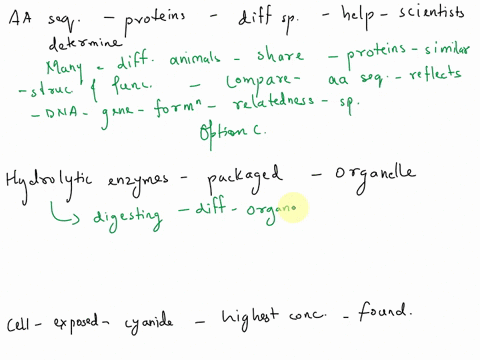 AA seq. - proteins - diff sp. - help - scientists
determine
Many - diff. animals - share - proteins - similar
- struc & func. - compare - aa seq. - reflects
- DNA - gene - formⁿ - relatedness - sp.
Option C.
Hydrolytic enzymes - packaged - organelle
↳ digesting - diff - organe
Cell - exposed - cyanide - highest conc. - found.